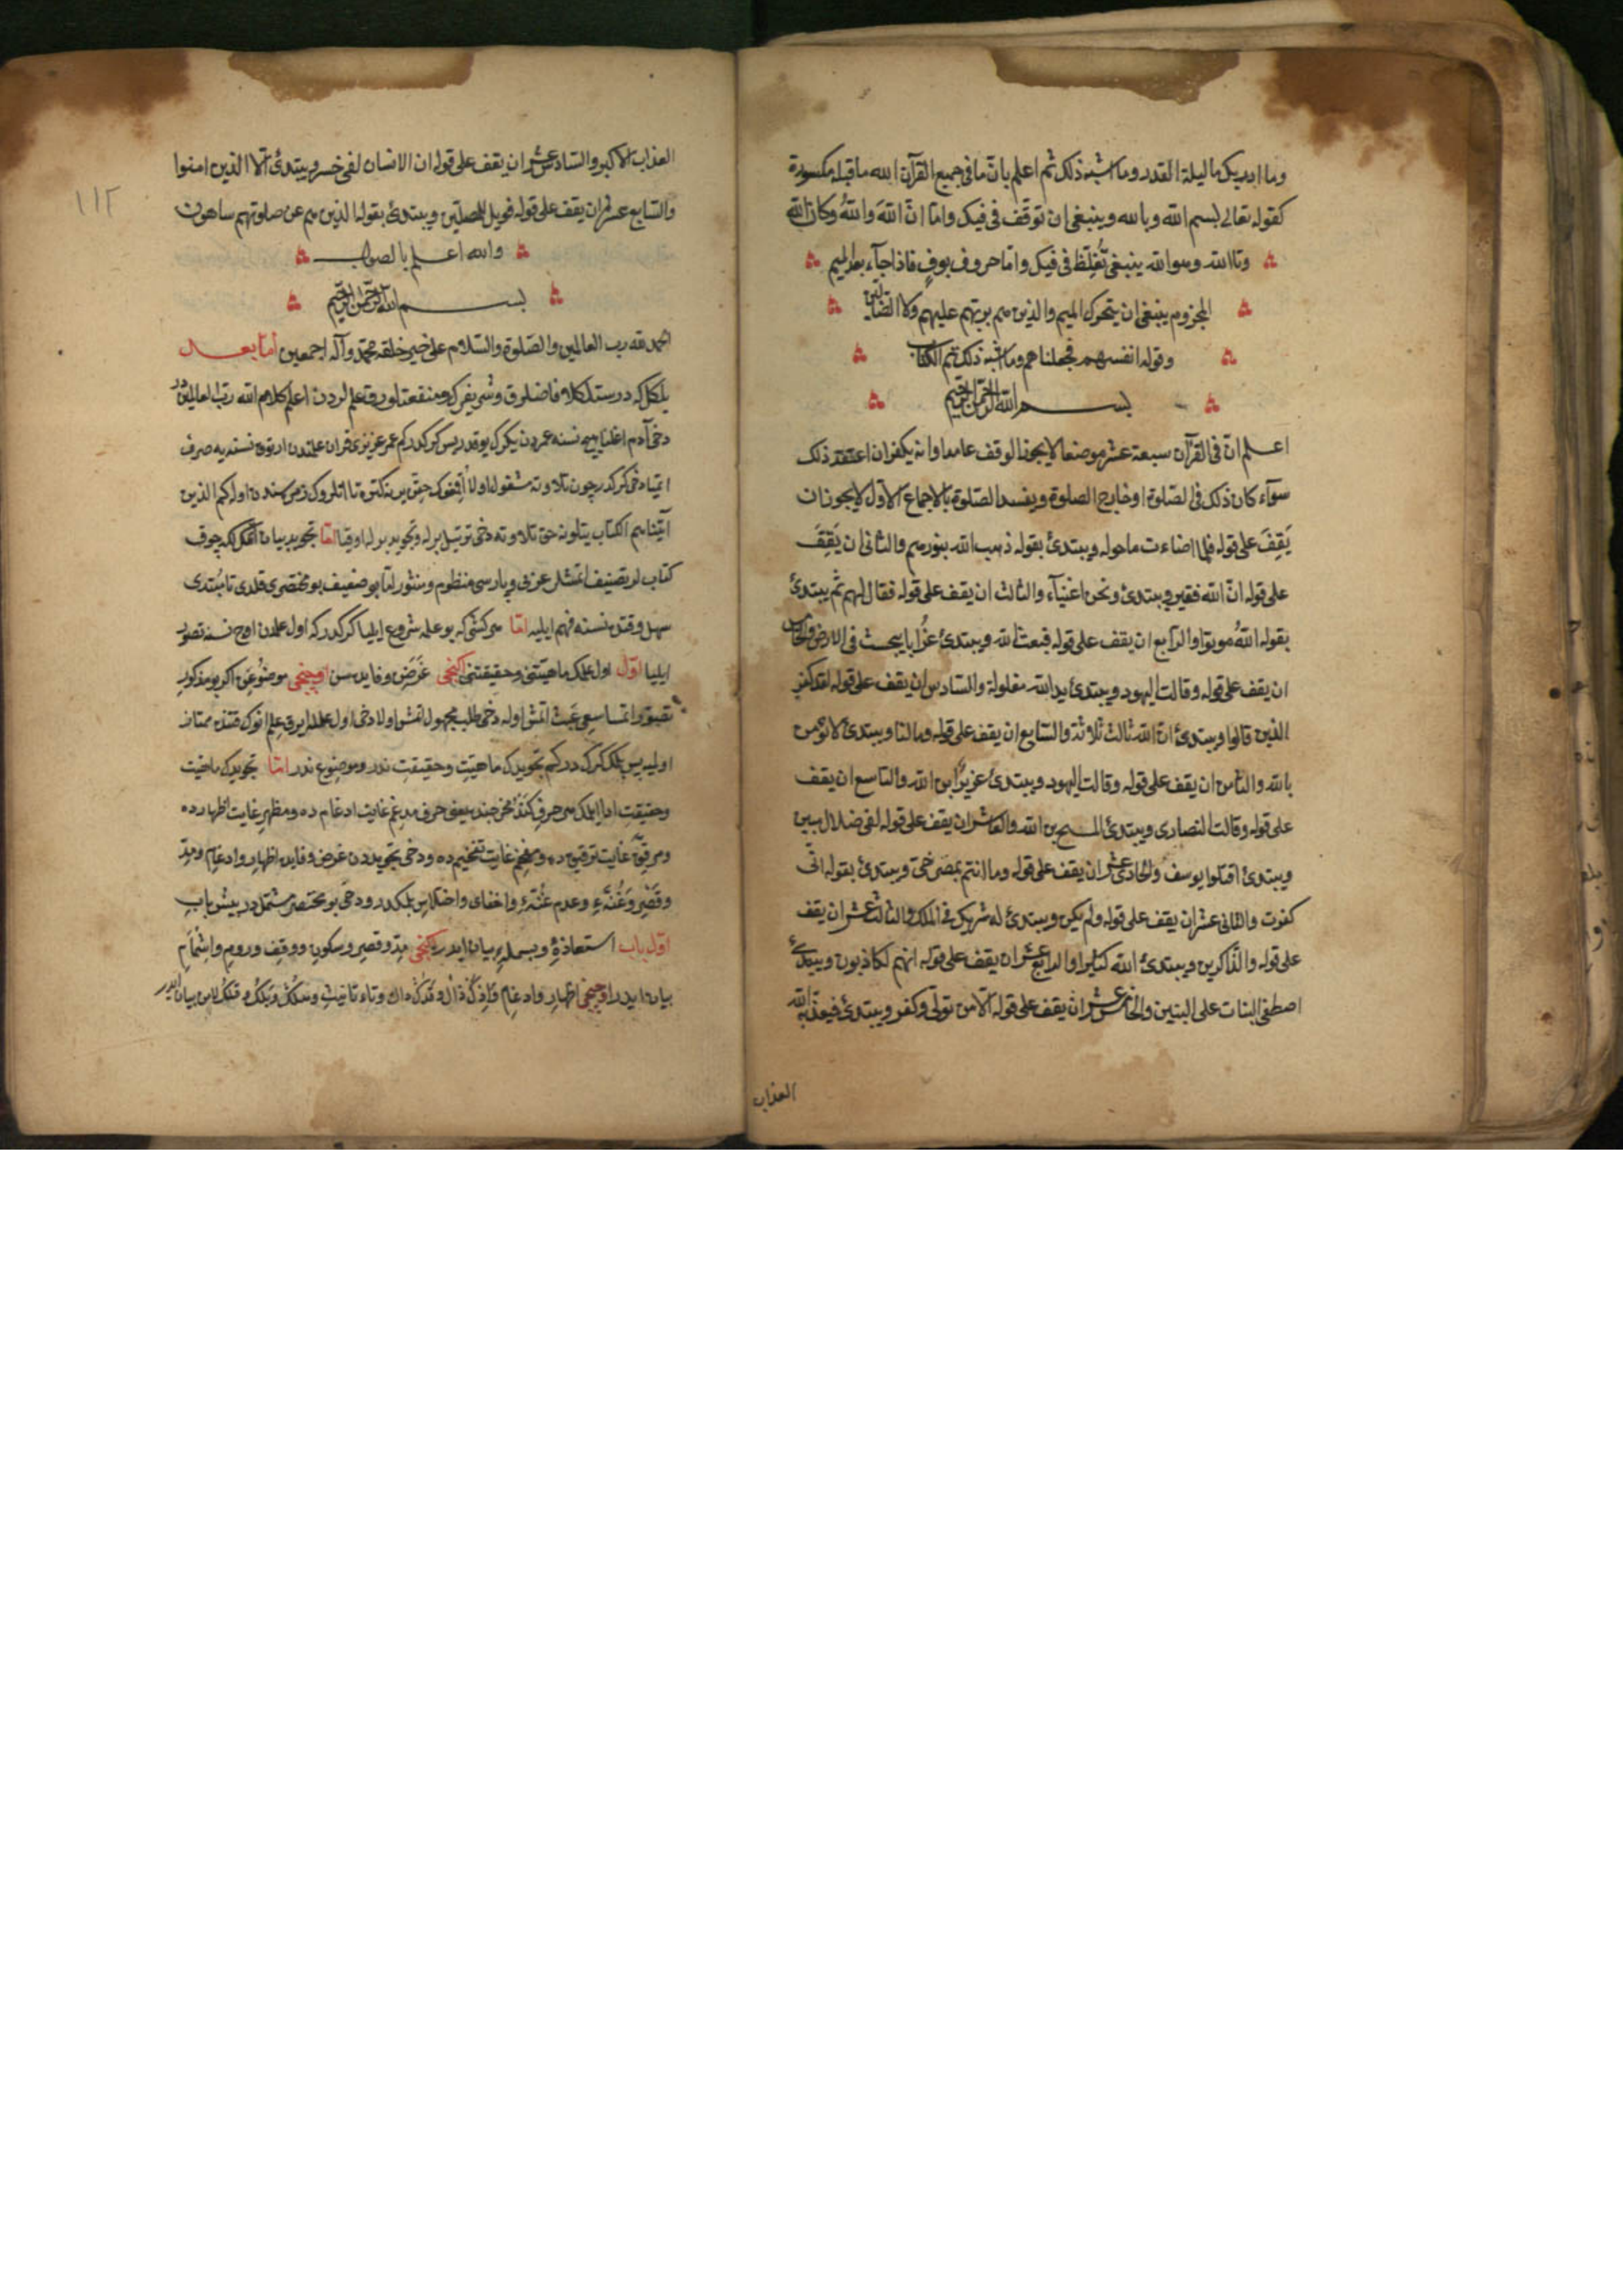 وما ادريك ما ليلة القدر وما اشبه ذلك ثم اعلم بان ما فى جميع القرآن الله ما قبله مكسورة
كقوله تعالى بسم الله وبالله وينبغى ان توقف فى فيك واما ان الله والله وكان الله
وتالله وهوالله ينبغى تغلظ فى فيك واما حروف بوف فاذا جآء بعد الميم
المجزوم ينبغى ان يتحرك الميم والذين هم بربهم عليهم ولا الضالين
وقوله انفسهم فجعلناهم وما اشبه ذلك تم الكتاب
بسم الله الرحمن الرحيم
اعلم ان فى القرآن سبعة عشر موضعا لا يجوز الوقف عامدا وانه يكفر ان اعتقد ذلك
سوآء كان ذلك فى الصلوة او خارج الصلوة ويفسد الصلوة بالاجماع الاول لا يجوز ان
يَقِفَ على قوله فلما اضاءت ما حوله ويبتدئ بقوله ذهب الله بنورهم والثانى ان يَقِفَ
على قوله انّ الله فقير ويبتدئ ونحن اغنيآء والثالث ان يقف على قوله فقال لهم ثم يبتدئ
بقوله اللهُ موتوا والرابع ان يقف على قوله فبعث الله ويبتدئ غرابا يبحث فى الارض والخامس
ان يقف على قوله وقالت اليهود ويبتدئ يد الله مغلولة والسادس ان يقف على قوله لقد كفر
الذين قالوا ويبتدئ ان الله ثالث ثلاثة والسابع ان يقف على قوله وما لنا ويبتدئ لا نؤمن
بالله والثامن ان يقف على قوله وقالت اليهود ويبتدئ عزيرٌ ابن الله والتاسع ان يقف
على قوله وقالت النصارى ويبتدئ المسيح بن الله والعاشر ان يقف على قوله لفى ضلال مبين
ويبتدئ اقتلوا يوسف والحادى عشر ان يقف على قوله وما انتم بمصرخى ويبتدئ بقوله انى
كفرت والثانى عشر ان يقف على قوله ولم يكن ويبتدئ له شريك فى الملك والثالث عشر ان يقف
على قوله والذاكرين ويبتدئ الله كثيرا والرابع عشر ان يقف على قوله انهم لكاذبون ويبتدئ
اصطفى البنات على البنين والخامس عشر ان يقف على قوله الا من تولى وكفر ويبتدئ فيعذبه الله
العذاب
١١٢
العذاب الاكبر والسادس عشر ان يقف على قوله ان الانسان لفى خسر ويبتدئ الا الذين امنوا
والسابع عشر ان يقف على قوله فويل للمصلين ويبتدئ بقوله الذين هم عن صلوتهم ساهون
والله اعلم بالصواب
بسم الله الرحمن الرحيم
الحمد لله رب العالمين والصلوة والسلام على خير خلقه محمد وآله اجمعين اما بعد
بلكل كه درستله كلام فاضلرق وشريفرك ومنفعتلورق علملردن اعلم كلام الله رب العالمين در
دخى آدم اغلنا هيچ نسنه عمردن يكرك يوقدر پس كركدركم عمر عزيزى قران علمندن ارتوق نسنه يه صرف
اتميا دخى كركدر چون تلاوته مشغول اولا حقن يرنه كتوره تا اولركم الذين
آتيناهم الكتاب يتلونه حق تلاوته دخى ترتيل برله وتجويد برله اوقيا اما تجويد بيان چوق
كتابلر تصنيف اتمشلر عربى وپارسى منظوم ومنثور اما بو ضعيف بو مختصرى قلدى تا مبتدى
سهل وقتن نسنه فهم ايليه اما هر كشى كه بو علمه شروع ايليا كركدر كه اول علمدن اوچ نسنه تصور
ايليا اول اول علمك ماهيتنى وحقيقتنى ايكنجى غرض وفايده سن اوچنجى موضوعن اكر بو مذكورى
اوليه پس بلمك كرك دركم تجويدك ماهيت وحقيقت ندر وموضوع ندر اما تجويدك ماهيت
وحقيقت ادا ايلمك هر حرفى كندو مخرجندن يعنى حرف مدغم غايت ادغامده ومظهر غايت اظهارده
ومرقق غايت ترقيقده ومفخم غايت تفخيمده ودخى تجويددن غرض وفايده اظهار وادغام ومد
وقصر وغنة وعدم غنة واخفاى واختلاس بلمكدر ودخى بو مختصر مشتملدر بيش باب
اول باب استعاذة وبسمله بيان ايدر ايكنجى مد وقصر وسكون ووقف وروم واشمام
بيان ايدر اوچنجى اظهار وادغام واذك ذال وقدك دال وتاء تانيث وهلك وبلك وقلك لامن بيان ايدر